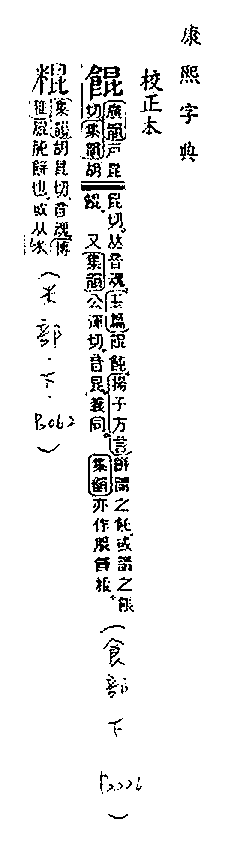 康熙字典
校正本
餛
廣韻戶昆
切集韻胡
昆切𠀤音魂玉篇餛飩揚子方言餅謂之飩或謂之餦
餛 又集韻公渾切音昆義同 集韻亦作
(食部 下
䊐
集韻胡昆切音魂博
餅也或从米
(米部.下.P.062)